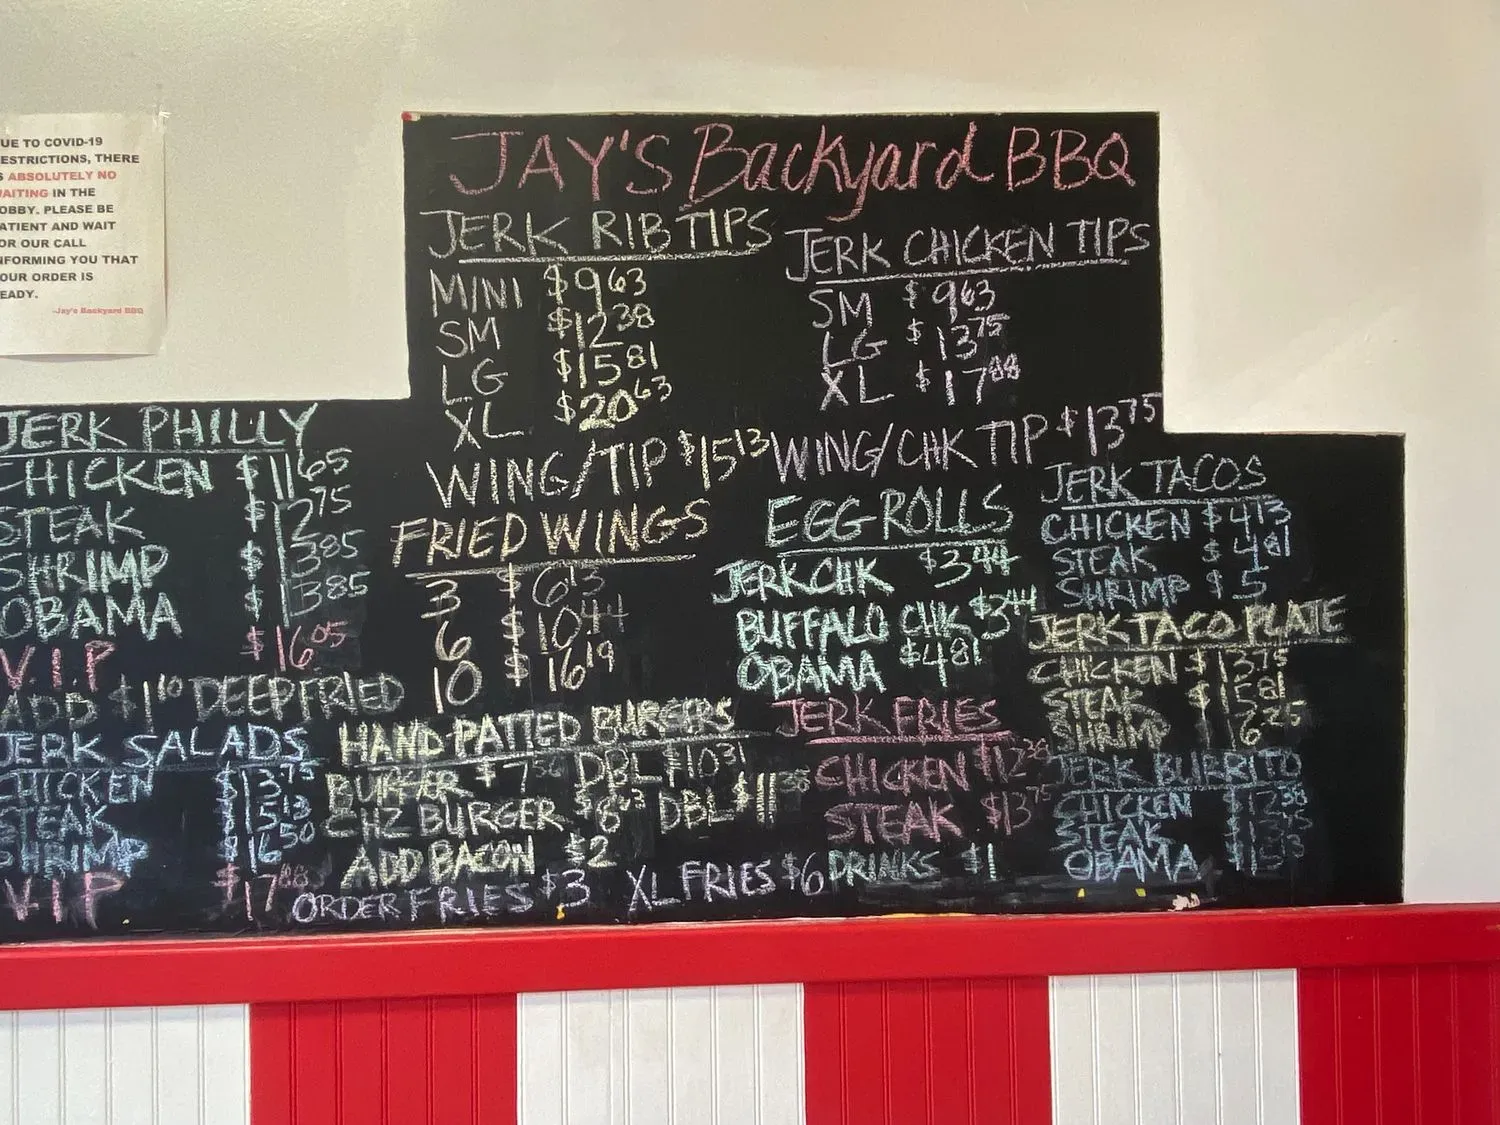 UE TO COVID-19
ESTRICTIONS, THERE
S ABSOLUTELY NO
AITING IN THE
OBBY. PLEASE BE
ATIENT AND WAIT
OR OUR CALL
NFORMING YOU THAT
OUR ORDER IS
EADY.
-Jay's Backyard BBQ
JAY'S Backyard BBQ
JERK RIB TIPS
MINI $9 63
SM $12 38
LG $15 81
XL $20 63
WING/TIP $15 13
JERK CHICKEN TIPS
SM $9 63
LG $13 75
XL $17 88
WING/CHK TIP $13 75
JERK PHILLY
CHICKEN $11 65
STEAK $12 75
SHRIMP $13 85
OBAMA $13 85
V.I.P $16 05
ADD $1 10 DEEP FRIED
FRIED WINGS
3 $6 13
6 $10 44
10 $16 19
EGG ROLLS
JERK CHK $3 44
BUFFALO CHK $3 44
OBAMA $4 81
JERK TACOS
CHICKEN $4 13
STEAK $4 81
SHRIMP $5
JERK TACO PLATE
CHICKEN $13 75
STEAK $15 81
SHRIMP
JERK SALADS
CHICKEN $13 75
STEAK $15 13
SHRIMP $16 50
V.I.P $17 88
HAND PATTED BURGERS
BURGER $7 56 DBL $10 31
CHZ BURGER $8 63 DBL $11 38
ADD BACON $2
ORDER FRIES $3 XL FRIES $6
JERK FRIES
CHICKEN $12 38
STEAK $13 75
DRINKS $1
JERK BURRITO
CHICKEN $12 38
STEAK $13 75
OBAMA $15 13